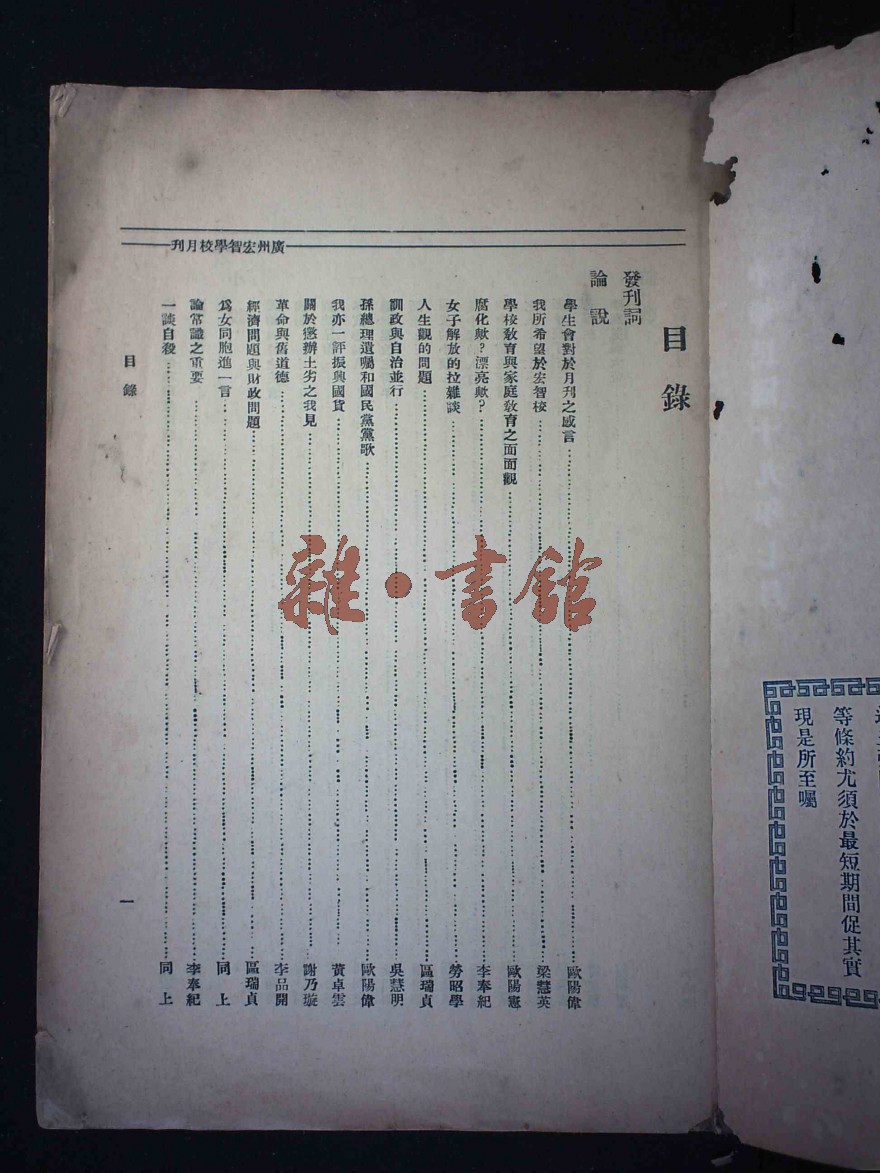 等條約尤須於最短期間促其實
現是所至囑
廣州宏智學校月刊
目錄
發刊詞
論說
學生會對於月刊之感言 歐陽偉
我所希望於宏智校 梁慧英
學校教育與家庭教育之面面觀 歐陽憲
腐化歟?漂亮歟? 李奉紀
女子解放的拉雜談 勞昭學
人生觀的問題 區瑞貞
訓政與自治並行 吳慧明
孫總理遺囑和國民黨黨歌 歐陽偉
我亦一評振興國貨 黃卓雲
關於懲辦土劣之我見 謝乃璇
革命與舊道德 李品開
經濟問題與財政問題 區瑞貞
爲女同胞進一言 同上
論常識之重要 李奉紀
一談自殺 同上
目錄
一
雜·書館